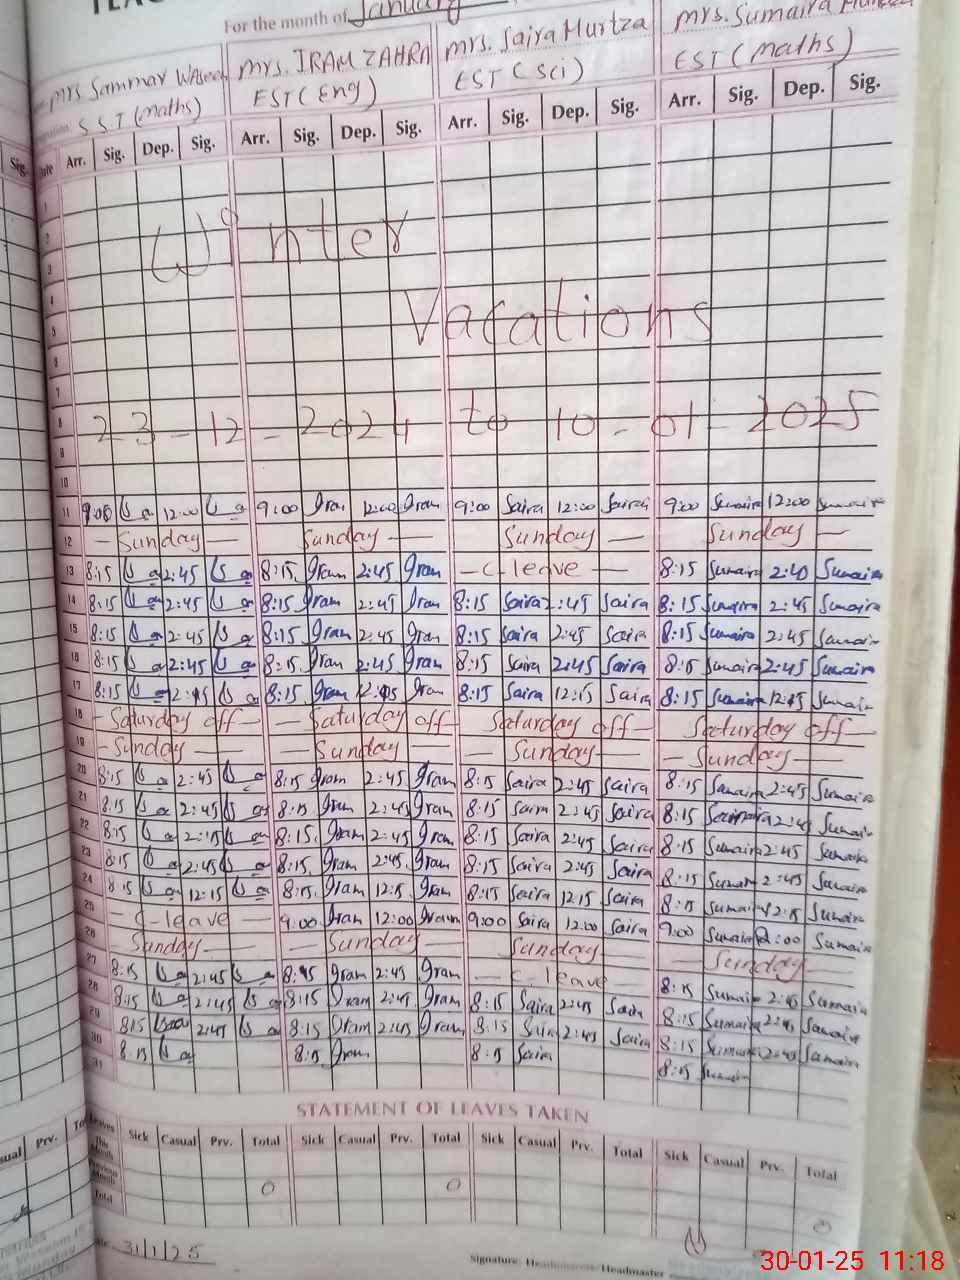 For the month of January
Mrs Sammar Waseem Mrs. IRAM ZAHRA Mrs. Saira Murtza Mrs. Sumaira
SST (Maths) EST (Eng) EST (Sci) EST (Maths)
Arr. Sig. Dep. Sig. Arr. Sig. Dep. Sig. Arr. Sig. Dep. Sig. Arr. Sig. Dep. Sig.
1
2 Winter
3
4
5 Vacations
6
7
8 23-12-2024 to 10-01-2025
9
10
11 9:00 12:00 9:00 Iram 12:00 Iram 9:00 Saira 12:00 Saira 9:00 Sumaira 12:00 Sumaira
12 - Sunday - Sunday - Sunday - Sunday -
13 8:15 2:45 8:15 Iram 2:45 Iram - C-leave - 8:15 Sumaira 2:40 Sumaira
14 8:15 2:45 8:15 Iram 2:45 Iram 8:15 Saira 2:45 Saira 8:15 Sumaira 2:45 Sumaira
15 8:15 2:45 8:15 Iram 2:45 Iram 8:15 Saira 2:45 Saira 8:15 Sumaira 2:45 Sumaira
16 8:15 2:45 8:15 Iram 2:45 Iram 8:15 Saira 2:45 Saira 8:15 Sumaira 2:45 Sumaira
17 8:15 8:15 Iram Iram 8:15 Saira 12:15 Saira 8:15 Sumaira 12:15 Sumaira
18 - Saturday off - - Saturday off - Saturday off - Saturday off -
19 - Sunday - - Sunday - - Sunday - - Sunday -
20 8:15 2:45 8:15 Iram 2:45 Iram 8:15 Saira 2:45 Saira 8:15 Sumaira 2:45 Sumaira
21 8:15 2:45 8:15 Iram 2:45 Iram 8:15 Saira 2:45 Saira 8:15 2:45 Sumaira
22 8:15 8:15 Iram 2:45 Iram 8:15 Saira 2:45 Saira 8:15 Sumaira 2:45 Sumaira
23 8:15 2:45 8:15 Iram 2:45 Iram 8:15 Saira 2:45 Saira 8:15 Sumaira 2:45 Sumaira
24 8:15 12:15 8:15 Iram 12:15 Iram 8:15 Saira 12:15 Saira 8:15 Sumaira 12:15 Sumaira
25 - C-leave - 9:00 Iram 12:00 Iram 9:00 Saira 12:00 Saira 9:00 Sumaira 12:00 Sumaira
26 - Sunday - - Sunday - Sunday - - Sunday -
27 8:15 2:45 8:15 Iram 2:45 Iram - C. leave - 8:15 Sumaira 2:45 Sumaira
28 8:15 2:45 8:15 Iram 2:45 Iram 8:15 Saira 2:45 Saira 8:15 Sumaira 2:45 Sumaira
29 8:15 2:45 8:15 Iram 2:45 Iram 8:15 Saira 2:45 Saira 8:15 Sumaira 2:45 Sumaira
30 8:15 8:15 Iram 8:15 Saira 8:15 Sumaira
31
STATEMENT OF LEAVES TAKEN
Leaves Sick Casual Prv. Total Sick Casual Prv. Total Sick Casual Prv. Total Sick Casual Prv. Total
This Month
Previous Month 0 0
Total 0
31/1/25
Signature: Headmistress/Headmaster
30-01-25 11:18